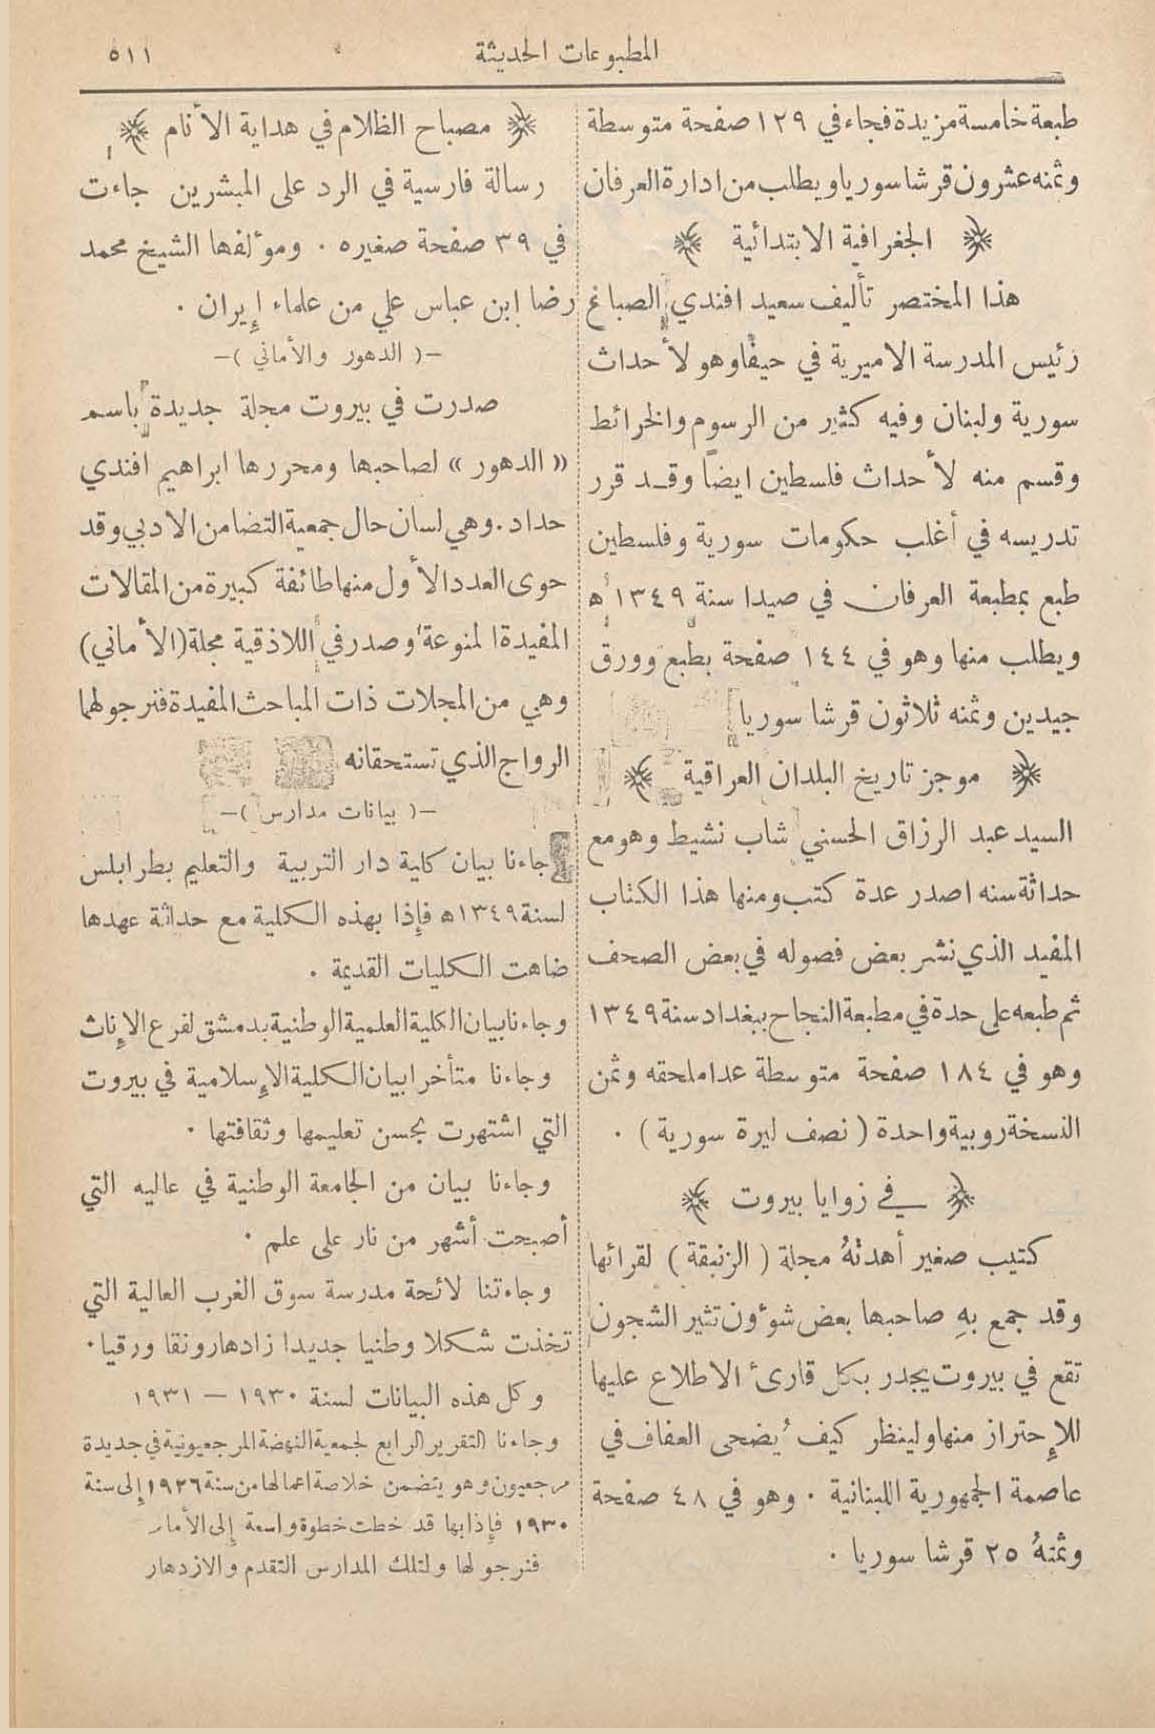 المطبوعات الحديثة
٥١١
طبعة خامسة مزيدة فجاء في ١٢٩ صفحة متوسطة
وثمنه عشرون قرشا سوريا ويطلب من ادارة العرفان
الجغرافية الابتدائية
هذا المختصر تأليف سعيد افندي الصباغ
رئيس المدرسة الاميرية في حيفا وهو لأحداث
سورية ولبنان وفيه كثير من الرسوم والخرائط
وقسم منه لأحداث فلسطين ايضاً وقد قرر
تدريسه في أغلب حكومات سورية وفلسطين
طبع بمطبعة العرفان في صيدا سنة ١٣٤٩ه
ويطلب منها وهو في ١٤٤ صفحة بطبع وورق
جيدين وثمنه ثلاثون قرشا سوريا
موجز تاريخ البلدان العراقية
السيد عبد الرزاق الحسني شاب نشيط وهو مع
حداثة سنه اصدر عدة كتب ومنها هذا الكتاب
المفيد الذي نشر بعض فصوله في بعض الصحف
ثم طبعه على حدة في مطبعة النجاح ببغداد سنة ١٣٤٩
وهو في ١٨٤ صفحة متوسطة عدا ملحقه وثمن
النسخة روبية واحدة ( نصف ليرة سورية ) ٠
في زوايا بيروت
كتيب صغير أهدتهُ مجلة ( الزنبقة ) لقرائها
وقد جمع بهِ صاحبها بعض شؤون تثير الشجون
تقع في بيروت يجدر بكل قارئ الاطلاع عليها
للإحتراز منها ولينظر كيف يُضحى العفاف في
عاصمة الجمهورية اللبنانية ٠ وهو في ٤٨ صفحة
وثمنهُ ٢٥ قرشا سوريا ٠
مصباح الظلام في هداية الأنام
رسالة فارسية في الرد على المبشرين جاءت
في ٣٩ صفحة صغيره ٠ ومؤلفها الشيخ محمد
رضا ابن عباس علي من علماء إيران ٠
–( الدهور والأماني )–
صدرت في بيروت مجلة جديدة باسم
« الدهور » لصاحبها ومحررها ابراهيم افندي
حداد ٠ وهي لسان حال جمعية التضامن الادبي وقد
حوى العدد الأول منها طائفة كبيرة من المقالات
المفيدة المنوعة وصدر في اللاذقية مجلة (الأماني)
وهي من المجلات ذات المباحث المفيدة فنرجو لهما
الرواج الذي تستحقانه
–( بيانات مدارس )–
جاءنا بيان كلية دار التربية والتعليم بطرابلس
لسنة ١٣٤٩ه فإذا بهذه الكلية مع حداثة عهدها
ضاهت الكليات القديمة ٠
وجاءنا بيان الكلية العلمية الوطنية بدمشق لفرع الإناث
وجاءنا متأخرا بيان الكلية الإسلامية في بيروت
التي اشتهرت بحسن تعليمها وثقافتها ٠
وجاءنا بيان من الجامعة الوطنية في عاليه التي
أصبحت أشهر من نار على علم ٠
وجاءتنا لائحة مدرسة سوق الغرب العالية التي
تخذت شكلا وطنيا جديدا زادها رونقا ورقيا ٠
وكل هذه البيانات لسنة ١٩٣٠ – ١٩٣١
وجاءنا التقرير الرابع لجمعية النهضة المرجعيونية في جديدة
مرجعيون وهو يتضمن خلاصة اعمالها من سنة ١٩٢٦ إلى سنة
١٩٣٠ فإذا بها قد خطت خطوة واسعة إلى الأمام
فنرجو لها ولتلك المدارس التقدم والازدهار